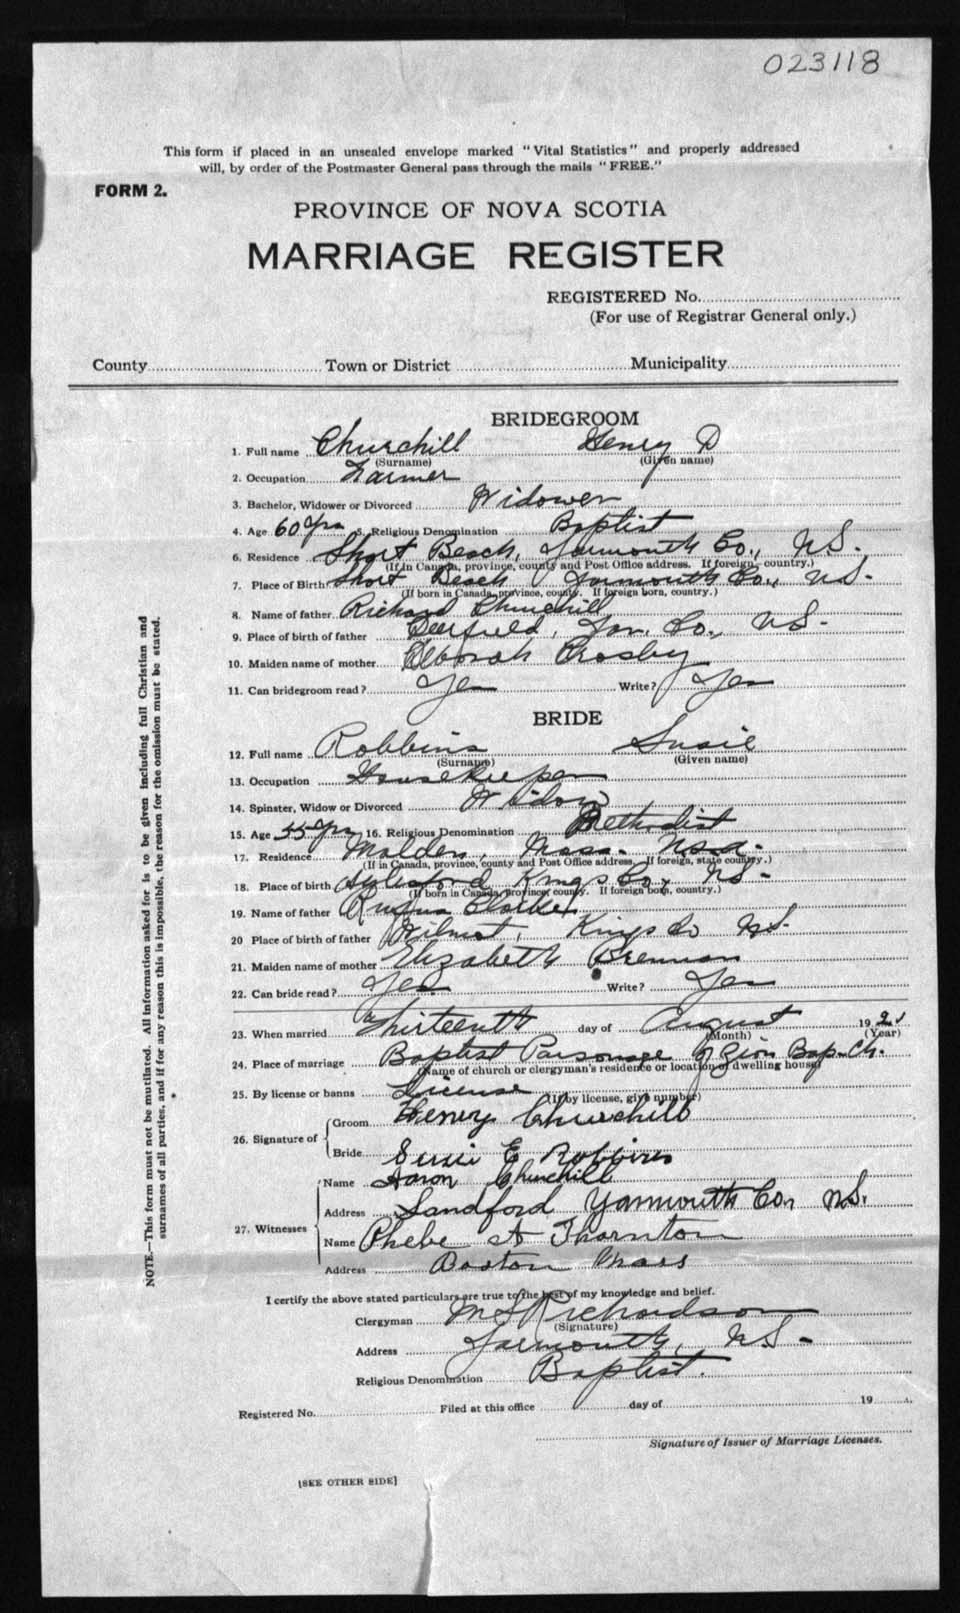 023118
This form if placed in an unsealed envelope marked "Vital Statistics" and properly addressed
will, by order of the Postmaster General pass through the mails "FREE."
FORM 2.
PROVINCE OF NOVA SCOTIA
MARRIAGE REGISTER
REGISTERED No.
(For use of Registrar General only.)
County Town or District Municipality
BRIDEGROOM
1. Full name Churchill Henry D
(Surname) (Given name)
2. Occupation Farmer
3. Bachelor, Widower or Divorced Widower
4. Age 60 yrs 5. Religious Denomination Baptist
6. Residence Short Beach, Yarmouth Co., N.S.
(If in Canada, province, county and Post Office address. If foreign, country.)
7. Place of Birth Short Beach, Yarmouth Co., N.S.
(If born in Canada, province, county. If foreign born, country.)
8. Name of father Richard Churchill
9. Place of birth of father Deerfield, Yar. Co., N.S.
10. Maiden name of mother Deborah Crosby
11. Can bridegroom read? Yes Write? Yes
BRIDE
12. Full name Robbins Susie
(Surname) (Given name)
13. Occupation Housekeeper
14. Spinster, Widow or Divorced Widow
15. Age 55 yrs 16. Religious Denomination Methodist
17. Residence Malden, Mass. U.S.A.
(If in Canada, province, county and Post Office address. If foreign, state country.)
18. Place of birth Aylesford Kings Co., N.S.
(If born in Canada, province, county. If foreign born, country.)
19. Name of father Rufus Clarke
20 Place of birth of father Wilmot, Kings Co N.S.
21. Maiden name of mother Elizabeth Brennan
22. Can bride read? Yes Write? Yes
23. When married the Thirteenth day of August 1921
(Month) (Year)
24. Place of marriage Baptist Parsonage of Zion Bap. Ch.
(Name of church or clergyman's residence or location of dwelling house)
25. By license or banns License
(If by license, give number)
26. Signature of Groom Henry Churchill
Bride Susie E Robbins
27. Witnesses Name Aaron Churchill
Address Sandford Yarmouth Co. N.S.
Name Phebe A Thornton
Address Boston Mass
I certify the above stated particulars are true to the best of my knowledge and belief.
Clergyman M S Richardson
(Signature)
Address Yarmouth, N.S.
Religious Denomination Baptist.
Registered No. Filed at this office day of 19
Signature of Issuer of Marriage Licenses.
[SEE OTHER SIDE]
NOTE.—This form must not be mutilated. All information asked for is to be given including full Christian and
surnames of all parties, and if for any reason this is impossible, the reason for the omission must be stated.